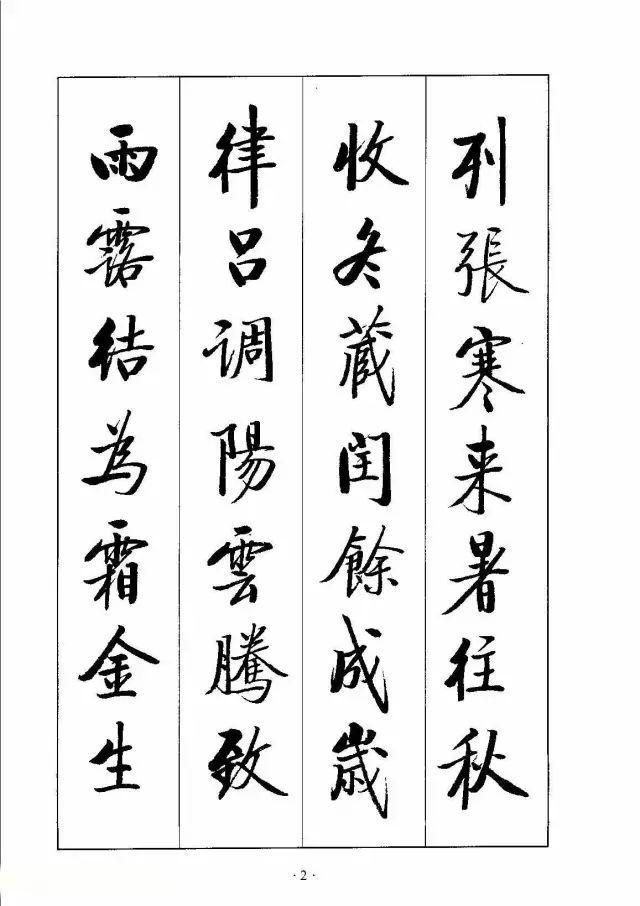 列張寒来暑往秋
收冬蔵閏餘成歲
律呂调陽雲騰致
雨露結為霜金生
·2·